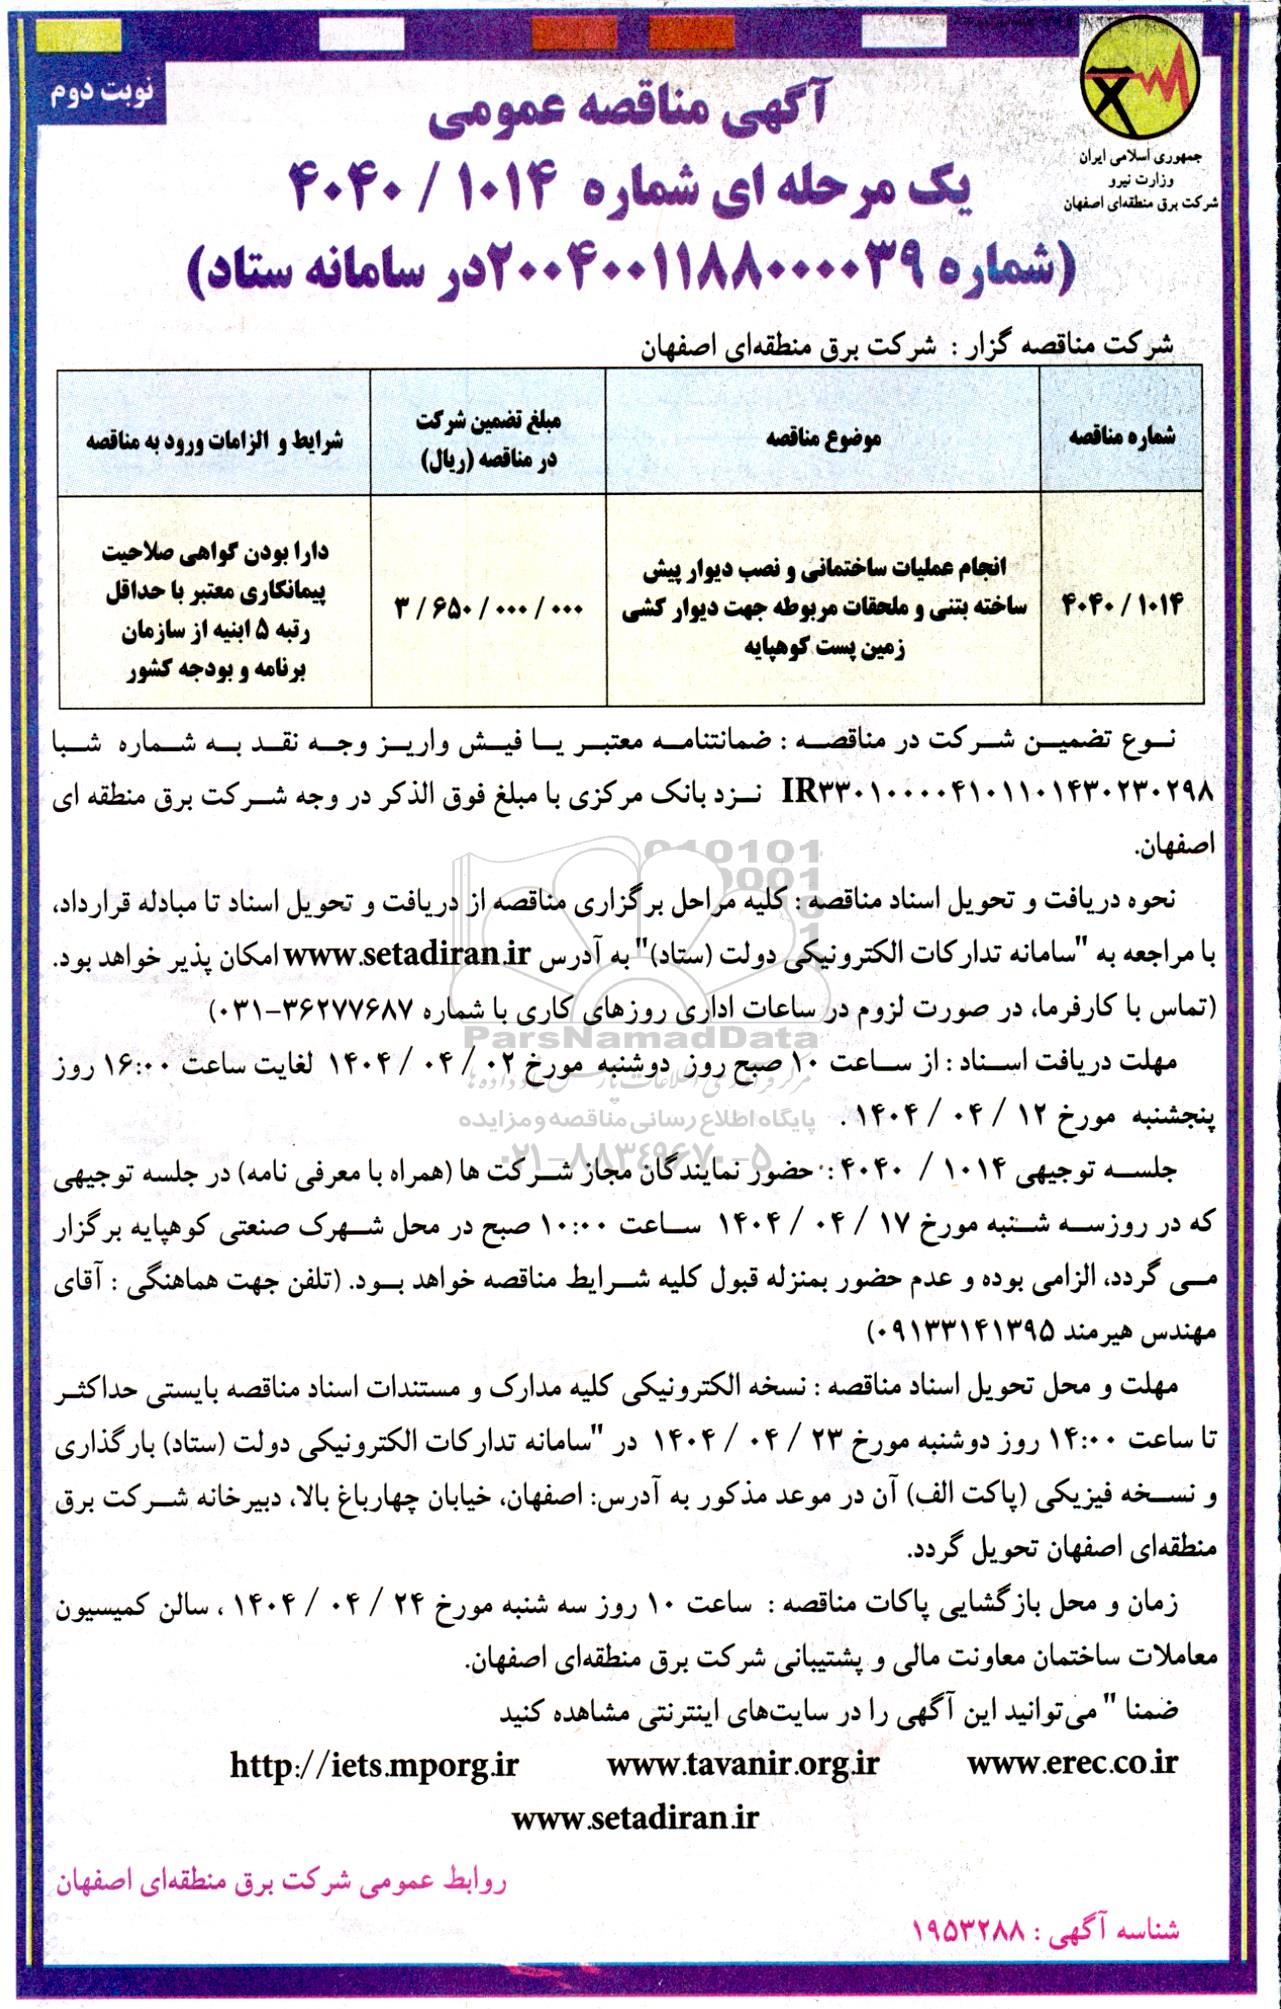 نوبت دوم
جمهوری اسلامی ایران
وزارت نیرو
شرکت برق منطقه‌ای اصفهان
آگهی مناقصه عمومی
یک مرحله ای شماره ۱۰۱۴ / ۴۰۴۰
(شماره ۲۰۰۴۰۰۱۱۸۸۰۰۰۰۳۹در سامانه ستاد)
شرکت مناقصه گزار : شرکت برق منطقه‌ای اصفهان
شماره مناقصه
موضوع مناقصه
مبلغ تضمین شرکت
در مناقصه (ریال)
شرایط و الزامات ورود به مناقصه
۴۰۴۰/۱۰۱۴
انجام عملیات ساختمانی و نصب دیوار پیش
ساخته بتنی و ملحقات مربوطه جهت دیوار کشی
زمین پست کوهپایه
۳/۶۵۰/۰۰۰/۰۰۰
دارا بودن گواهی صلاحیت
پیمانکاری معتبر با حداقل
رتبه ۵ ابنیه از سازمان
برنامه و بودجه کشور
نوع تضمین شرکت در مناقصه : ضمانتنامه معتبر یا فیش واریز وجه نقد به شماره شبا
IR۳۳۰۱۰۰۰۰۴۱۰۱۱۰۱۴۳۰۲۳۰۲۹۸ نزد بانک مرکزی با مبلغ فوق الذکر در وجه شرکت برق منطقه ای
اصفهان.
نحوه دریافت و تحویل اسناد مناقصه : کلیه مراحل برگزاری مناقصه از دریافت و تحویل اسناد تا مبادله قرارداد،
با مراجعه به "سامانه تدارکات الکترونیکی دولت (ستاد)" به آدرس www.setadiran.ir امکان پذیر خواهد بود.
(تماس با کارفرما، در صورت لزوم در ساعات اداری روزهای کاری با شماره ۳۶۲۷۷۶۸۷-۰۳۱)
ParsNamadData
مهلت دریافت اسناد : از ساعت ۱۰ صبح روز دوشنبه مورخ ۰۲ / ۰۴ / ۱۴۰۴ لغایت ساعت ۱۶:۰۰ روز
پنجشنبه مورخ ۱۲ / ۰۴ / ۱۴۰۴ .
پایگاه اطلاع رسانی مناقصه و مزایده
۰۲۱-۸۸۳۴۹۶۷۰-۵
جلسه توجیهی ۱۰۱۴ / ۴۰۴۰ : حضور نمایندگان مجاز شرکت ها (همراه با معرفی نامه) در جلسه توجیهی
که در روزسه شنبه مورخ ۱۷ / ۰۴ / ۱۴۰۴ ساعت ۱۰:۰۰ صبح در محل شهرک صنعتی کوهپایه برگزار
می گردد، الزامی بوده و عدم حضور بمنزله قبول کلیه شرایط مناقصه خواهد بود. (تلفن جهت هماهنگی : آقای
مهندس هیرمند ۰۹۱۳۳۱۴۱۳۹۵)
مهلت و محل تحویل اسناد مناقصه : نسخه الکترونیکی کلیه مدارک و مستندات اسناد مناقصه بایستی حداکثر
تا ساعت ۱۴:۰۰ روز دوشنبه مورخ ۲۳ / ۰۴ / ۱۴۰۴ در "سامانه تدارکات الکترونیکی دولت (ستاد) بارگذاری
و نسخه فیزیکی (پاکت الف) آن در موعد مذکور به آدرس: اصفهان، خیابان چهارباغ بالا، دبیرخانه شرکت برق
منطقه‌ای اصفهان تحویل گردد.
زمان و محل بازگشایی پاکات مناقصه : ساعت ۱۰ روز سه شنبه مورخ ۲۴ / ۰۴ / ۱۴۰۴ ، سالن کمیسیون
معاملات ساختمان معاونت مالی و پشتیبانی شرکت برق منطقه‌ای اصفهان.
ضمنا " می‌توانید این آگهی را در سایت‌های اینترنتی مشاهده کنید
www.erec.co.ir www.tavanir.org.ir http://iets.mporg.ir
www.setadiran.ir
روابط عمومی شرکت برق منطقه‌ای اصفهان
شناسه آگهی : ۱۹۵۳۲۸۸